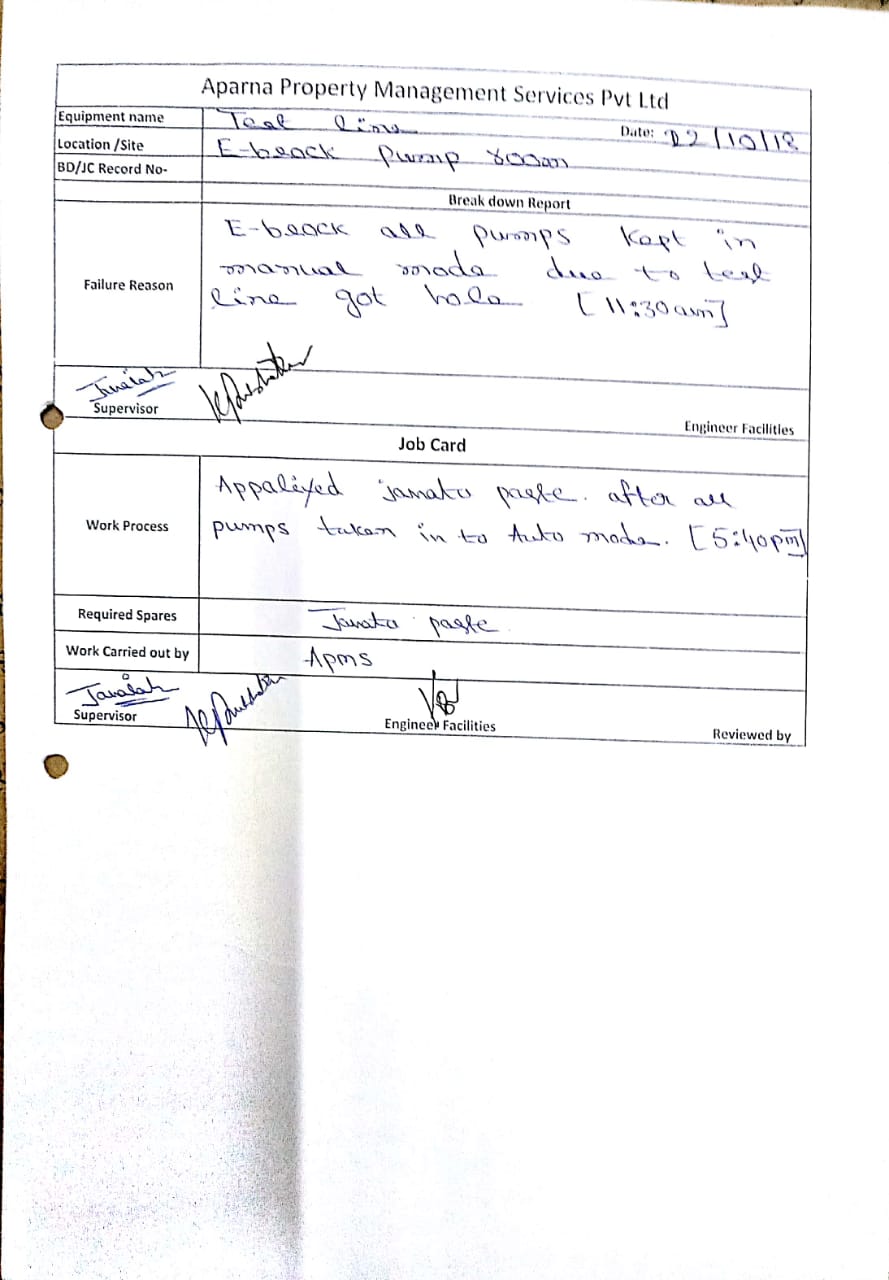 Aparna Property Management Services Pvt Ltd
Equipment name Test line Date: 22/10/18
Location /Site E-block pump room
BD/JC Record No-
Break down Report
Failure Reason
E-block all pumps kept in
manual mode due to test
line got hole [11:30am]
Supervisor
Engineer Facilities
Job Card
Work Process
Appaliyed janata paste. after all
pumps taken in to Auto mode. [5:40pm]
Required Spares Janata paste.
Work Carried out by Apms
Supervisor
Engineer Facilities
Reviewed by